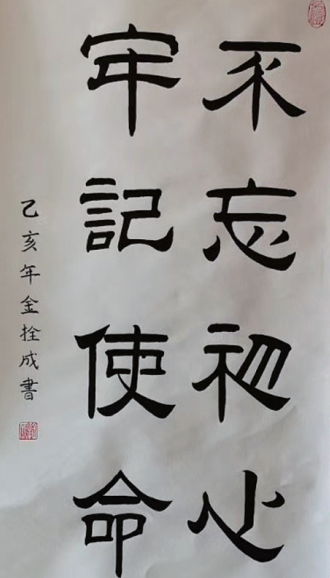 不忘初心
牢記使命
乙亥年金拴成書